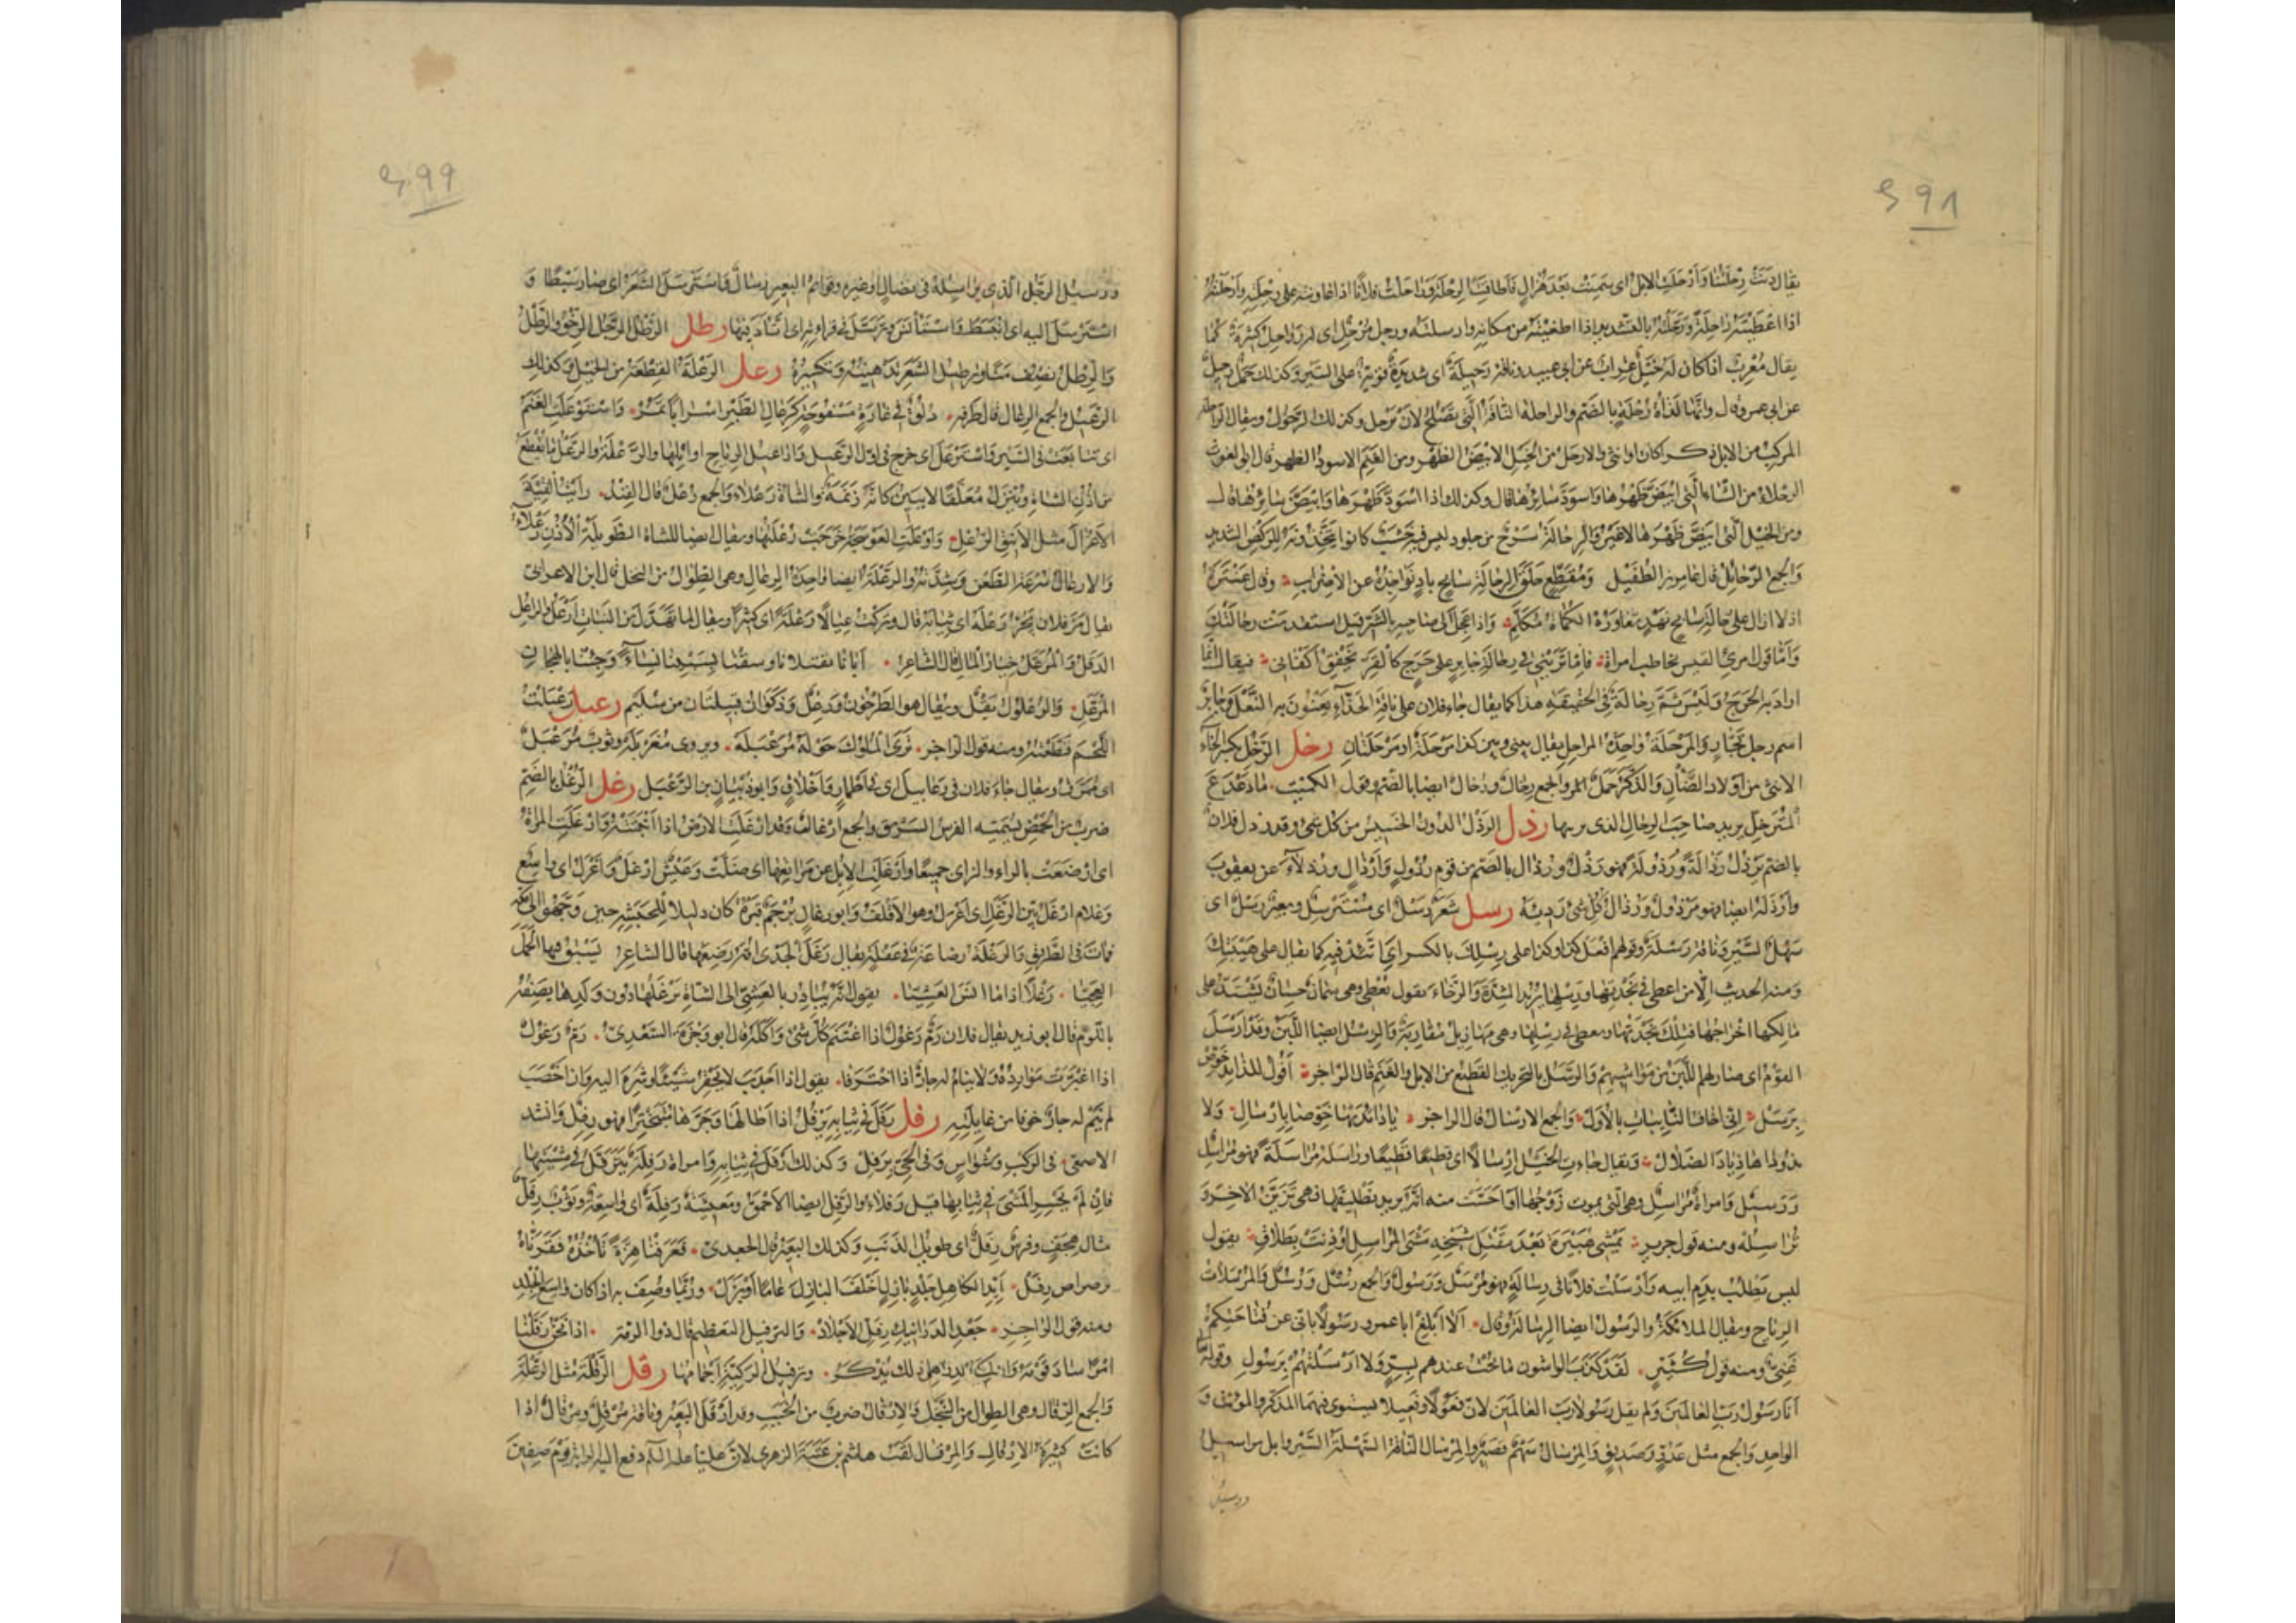 ۶۹۸
يقال دنت رحلتنا وارحلت الابل اى سمنت بعد هزال فاطاقت الرحلة وراحلت فلانا اذا عاونته على رحلته وارحلته
اذا اعطيته راحلة ورحلته بالتشديد اذا اظعنته من مكانه وارسلته ورجل مرحل اى له رواحل كثيرة كما
يقال معرب اذا كان له خيل عراب عن ابى عبيد وناقة رحيلة اى شديدة قوية على السير وكذلك جمل رحيل
عن ابى عمرو قال وانها لذات رحلة بالضم والراحلة الناقة التى تصلح لان ترحل وكذلك الرحول ويقال الراحلة
المركب من الابل ذكرا كان او انثى والارحل من الخيل الابيض الظهر ومن الغنم الاسود الظهر قال ابو الغوث
الرحلاء من الشاء التى ابيض ظهرها واسود سائرها قال وكذلك اذا اسود ظهرها وابيض سائرها قال
ومن الخيل التى ابيض ظهرها لاغير والرحالة سرج من جلود ليس فيه خشب كانوا يتخذونه للركض الشديد
والجمع الرحائل قال عامر بن الطفيل ومقطع حلق الرحالة سابح باد نواجذه عن الاضراب وقال عنترة
اذ لا ازال على رحالة سابح نهد تعاوره الكماة مكلم واذا عجل الى صاحبه بالشر قيل استقدمت رحالتك
واما قول امرئ القيس يخاطب امراة فاما ترينى فى رحالة جابر على حرج كالقر تخفق اكفانى فيقال انما
اراد به الحرج وليس ثم رحالة فى الحقيقة هذا كما يقال جاء فلان على ناقة الحذاء يعنون به النعل وجابر
اسم رجل نجار والمرحلة واحدة المراحل يقال بينى وبين كذا مرحلة او مرحلتان رخل الرخل بكسر الخاء
الانثى من اولاد الضأن والذكر حمل والجمع رخال ورخال ايضا بالضم وقول الكميت ما دعدع
المترخل يريد صاحب الرخال الذى يربها رذل الرذل الدون الخسيس من كل شئ وقد رذل فلان
بالضم يرذل رذالة ورذولة فهو رذل ورذال بالضم من قوم رذول وارذال ورذلاء عن يعقوب
وارذله ايضا فهو مرذول ورذال كل شئ رديئه رسل شعر رسل اى مسترسل وبعير رسل اى
سهل السير وناقة رسلة وقولهم افعل كذا وكذا على رسلك بالكسر اى اتئد فيه كما يقال على هينتك
ومنه الحديث الا من اعطى فى نجدتها ورسلها يريد الشدة والرخاء يقول يعطى وهى سمان حسان يشتد على
مالكها اخراجها فتلك نجدتها ويعطى فى رسلها وهى مهازيل مقاربة والرسل ايضا اللبن وقد ارسل
القوم اى صار لهم اللبن من مواشيهم والرسل بالتحريك القطيع من الابل والغنم قال الراجز اقول للذائد خوص
برسل انى اخاف النائبات بالاول والجمع الارسال قال الراجز يا ذائديها خوصا بارسال ولا
تذوداها ذياد الضلال ويقال جاءت الخيل ارسالا اى قطيعا قطيعا وراسله مراسلة فهو مراسل
ورسيل وامراة مراسل وهى التى يموت زوجها او احست منه انه يريد تطليقها فهى تزين لاخر و
تراسله ومنه قول جرير يمشى هبيرة بعد مقتل شيخه مشى المراسل اوذنت بطلاق يقول
ليس يطلب بدم ابيه وارسلت فلانا فى رسالة فهو مرسل ورسول والجمع رسل ورسل والمرسلات
الرياح ويقال الملائكة والرسول ايضا الرسالة وقال الا ابلغ ابا عمرو رسولا بانى عن فتاحتكم
غنى ومنه قول كثير لقد كذب الواشون ما بحت عندهم بسر ولا ارسلتهم برسول وقوله تعالى
انا رسول رب العالمين ولم يقل رسولا رب العالمين لان فعولا وفعيلا يستوى فيهما المذكر والمونث و
الواحد والجمع مثل عدو وصديق والمرسال سهم قصير والمرسال الناقة السهلة السير وابل مراسيل
ورسيل
۶۹۹
ورسيل الرجل الذى يراسله فى نضال او غيره وقوائم البعير رسال واسترسل الشعر اى صار سبطا و
استرسل اليه اى انبسط واستأنس وترسل فى قراءته اى اتأد فيها رطل الرطل الرجل الرخو والرطل
والرطل نصف منا وترطيل الشعر تدهينه وتكسيره رعل الرعلة القطعة من الخيل وكذلك
الرعيل والجمع الرعال قال طرفه ذلق فى غارة مسفوحة كرعال الطير اسرابا تمر واسترعلت الغنم
اى تتابعت فى السير واسترعل اى خرج فى اول الرعيل واراعيل الرياح اوائلها والرعلة والرعل ما يقطع
من اذن الشاة ويترك معلقا لا يبين كانه زنمة والشاة رعلاء والجمع رعل قال الفند رايت الفتية
الاعزال مثل الاينق الرعل وارعلت العوسجة خرجت رعلتها ويقال ايضا للشاة الطويلة الاذن رعلاء
والارعال سرعة الطعن وشدته والرعلة ايضا واحدة الرعال وهى الطوال من النخل قال ابن الاعرابى
يقال مر فلان يجر رعله اى ثيابه قال وتركت عيالا رعلة اى كثيرا ويقال لما تهدل من النبات ارعل والراعل
الدقل والمرعل خيار المال قال الشاعر ابانا بقتلانا وسقنا بسبينا نساء وجئنا بالهجان
المرعل والرعلول بقل ويقال هو الطرخون ورعل وذكوان قبيلتان من سليم رعبل رعبلت
اللحم قطعته ومنه قول الراجز ترى الملوك حوله مرعبله ويروى مغربله وثوب مرعبل
اى ممزق ويقال جاء فلان فى رعابيل اى فى اطمار واخلاق وابو ذبيان بن الرعبل رغل الرغل بالضم
ضرب من الحمض يسميه الفرس السرمق والجمع ارغال وقد ارغلت الارض اذا انبتته وارغلت المراة
اى ارضعت بالراء والزاى جميعا وارغلت الابل عن مراتعها اى ضلت وعيش ارغل واغرل اى واسع
وغلام ارغل بين الرغل اى اغرل وهو الاقلف وابو رغال يرجم قبره كان دليلا للحبشة حين وجهوا الى مكة
فمات فى الطريق والرغلة رضاعة فى غفلة يقال رغل الجدى امه رضعها قال الشاعر يسبق فيها الحمل
العجيا رغلا اذا ما آنس العشيا يقول انه يبادر بالعشى الى الشاة يرغلها دون ولدها يصفه
باللؤم قال ابو زيد يقال فلان رم رغول اذا اغتنم كل شئ واكله قال ابو وجزة السعدى رم رغول
اذا اغبرت موارده ولا ينام له جار اذا اخترفا يقول اذا اجدب لا يحقر شيئا وشره اليه وان اخصب
لم ينم له جار خوفا من غائلته رفل رفل فى ثيابه يرفل اذا اطالها وجرها متبخترا فهو رفل وانشد
الاصمعى فى الركب وشواش وفى الحى رفل وكذلك ارفل فى ثيابه وامراة رفلة تترفل فى مشيتها
فان لم تحسن المشى فى ثيابها قيل رفلاء والرفل ايضا الاحمق ومعيشة رفلة اى واسعة وثوب رفل
مثال هجف وفرس رفل اى طويل الذنب وكذلك البعير قال الجعدى فعرفنا هزة تأخذه فقرناه
برضراض رفل ايد الكاهل جلد بازل اخلف البازل عاما او بزل وربما وصف به اذا كان واسع الجلد
ومنه قول الراجز جعد الدرانيك رفل الاجلاد والترفيل التعظيم قال ذو الرمة اذا نحن رفلنا
امرأ ساد قومه وان لم يكن من قبل ذلك يذكر وترفيل الركية اجمامها رقل الرقلة مثل الرعلة
والجمع الرقال وهى الطوال من النخل والارقال ضرب من الخبب وقد ارقل البعير وناقة مرقل ومرقال اذا
كانت كثيرة الارقال والمرقال لقب هاشم بن عتبة الزهرى لان عليا عليه السلام دفع اليه الراية يوم صفين